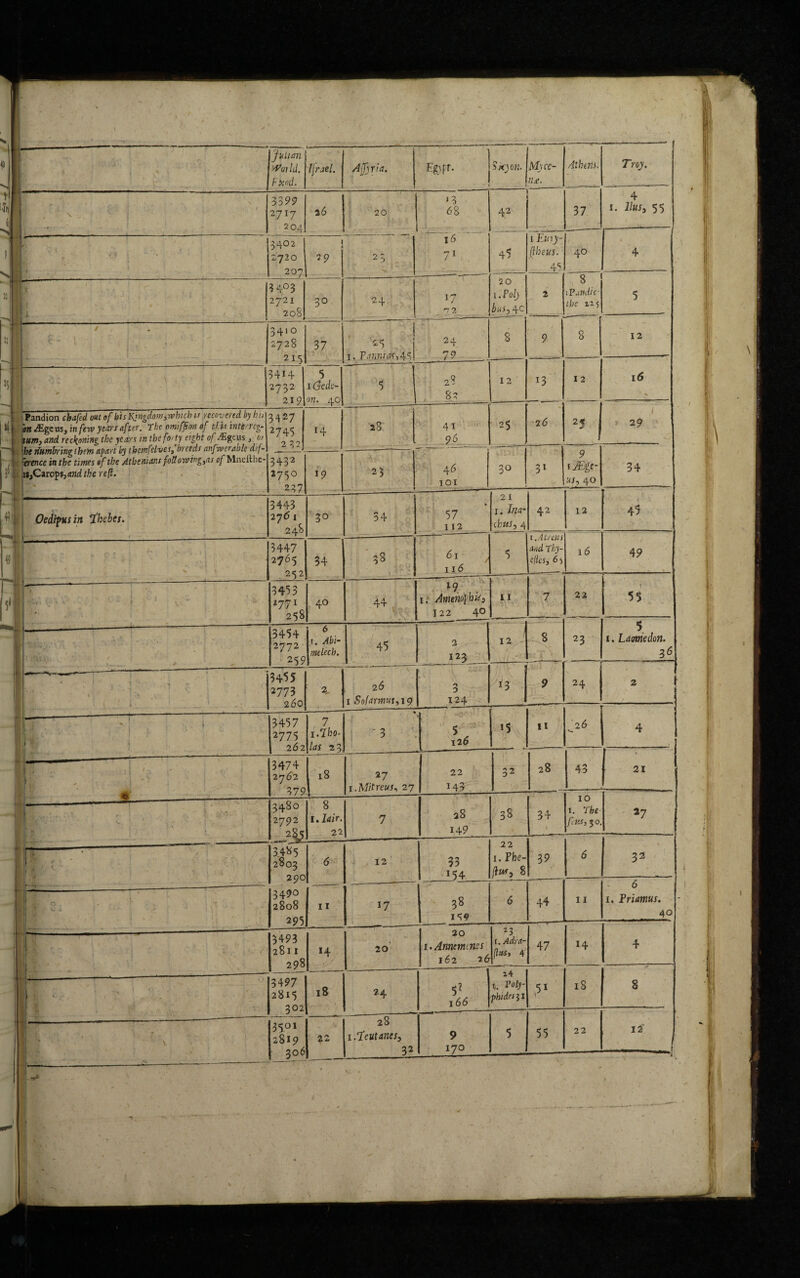 Julian World. Exod. Israel. Assyria. Egypt. Sicyon. Mycenæ. Athens. Troy.
3399 2717 204 26 20 13 68 42 37 4 1. Ilus, 55
3402 2720 207 29 23 16 71 45 1 Eurystheus. 45 40 4
3403 2721 208 30 24 17 72 20 1.Polybus, 40 2 8 1Pandio the 5
3410 2728 215 37 25 1. Pannias,45 24 79 8 9 8 12
3414 2732 219 5 1 Gedeon. 40 5 28 83 12 13 12 16
Pandion chased out of his Kingdom, which is recovered by his
son Ægeus, in few years after. The omission of this interreg-
num, and reckoning the years in the forty eight of Ægeus, or
the numbring them apart by themselves, breeds answerable dif-
ference in the times of the Athenians following, as of Mnesthe-
us,Carops,and the rest.
3427 2745 232 14 28 41 96 25 26 25 29
3432 2750 237 19 23 46 101 30 31 9 1Ægeus, 40 34
Oedipus in Thebes.
3443 2761 248 30 34 57 112 21 1. Inachus, 4 42 12 45
3447 2765 252 34 38 61 116 5 1.Atreus and Thyestes, 65 16 49
3453 2771 258 40 44 19 1. Amenophis, 122 40 11 7 22 55
3454 2772 259 6 1. Abimelech. 45 2 123 12 8 23 5 1. Laomedon. 36
3455 2773 260 2 26 1 Sosarmus,19 3 124 13 9 24 2
3457 2775 262 7 1.Tholas 23 3 5 126 15 11 26 4
3474 2762 379 18 27 1.Mitreus, 27 22 143 32 28 43 21
3480 2792 285 8 1. Iair. 22 7 28 149 38 34 10 1. Theseus, 30. 27
3485 2803 290 6 12 33 154 22 1. Phestus, 8 39 6 32
3490 2808 295 11 17 38 159 6 44 11 6 1. Priamus. 40
3493 2811 298 14 20 20 1.Annemenes 162 26 23 1. Adrastus, 4 47 14 4
3497 2815 302 18 24 5? 166 24 1. Polyphides 31 51 18 8
3501 2819 306 22 28 1.Teutanes, 32 9 170 5 55 22 12